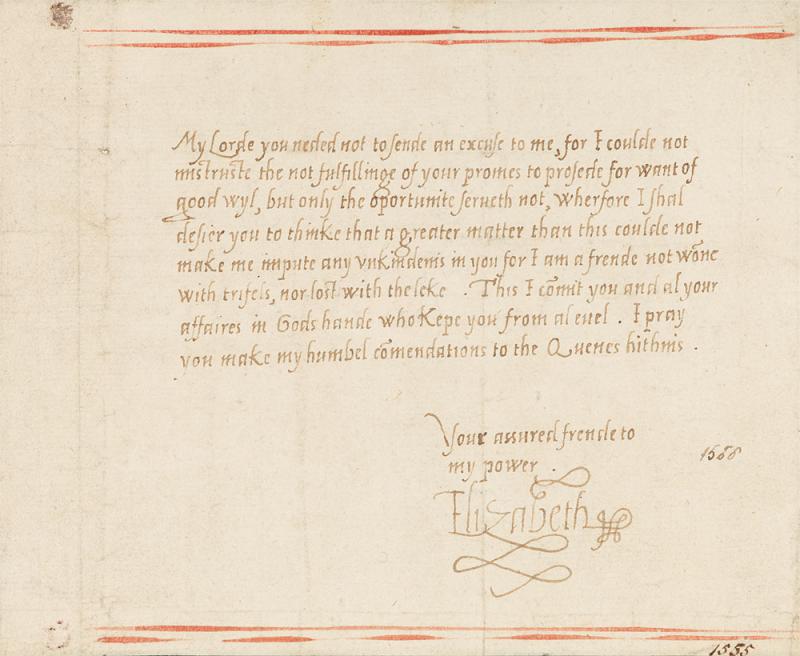 My Lorde you neded not to sende an excuse to me, for I coulde not
mistruste the not fulfillinge of your promes to prosede for want of
good wyl, but only the oportunite serveth not, wherfore I shal
desier you to thinke that a greater matter than this coulde not
make me impute any vnkindenis in you for I am a frende not wōne
with trifels, nor lost with the leke . Thus I cōmit you and al your
affaires in Gods hande who Kepe you from al euel . I pray
you make my humbel cōmendations to the Quenes hithnis .
Your assured frende to
my power .
1558
Elizabeth
1555